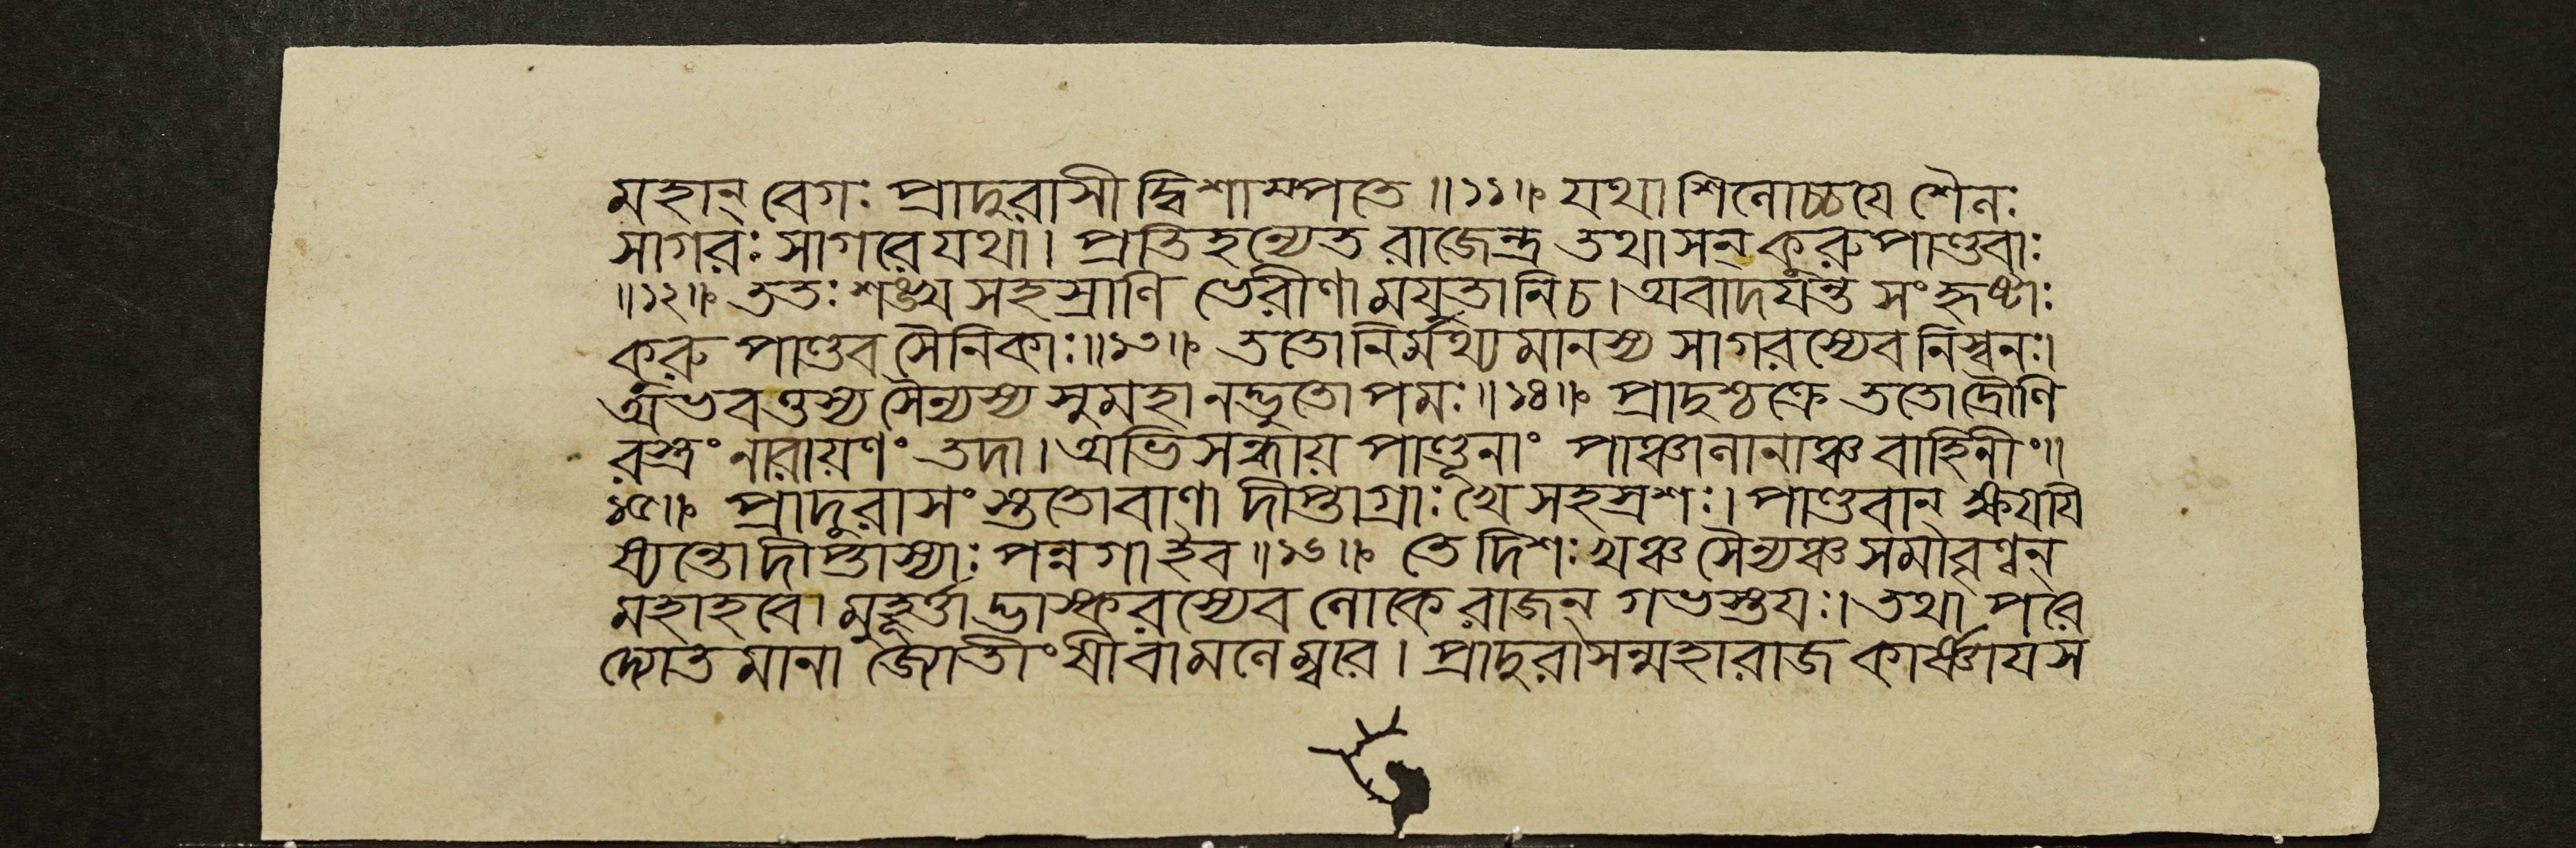 মহান্ বেগঃ প্রাদুরাসীদ্বিশাম্পতে ॥১১॥ যথা শিলোচ্চয়ে শৈলঃ
সাগরঃ সাগরে যথা। প্রতিহন্যেত রাজেন্দ্র তথাসন্ কুরুপাণ্ডবাঃ
॥১২॥ ততঃ শঙ্খসহস্রাণি ভেরীণামযুতানি চ। অবাদয়ন্ত সংহৃষ্টাঃ
কুরুপাণ্ডবসৈনিকাঃ॥১৩॥ ততো নির্মথ্যমানস্য সাগরস্যেব নিস্বনঃ।
অভবত্তস্য সৈন্যস্য সুমহানদ্ভুতোপমঃ॥১৪॥ প্রাদুশ্চক্রে ততো দ্রৌণি
রস্ত্রং নারায়ণং তদা। অভিসন্ধায় পাণ্ডূনাং পাঞ্চালানাঞ্চ বাহিনীং॥
১৫॥ প্রাদুরাসংস্ততো বাণা দীপ্তাগ্রাঃ খে সহস্রশঃ। পাণ্ডবান্ ক্ষয়যি
ষ্যন্তো দীপ্তাস্যাঃ পন্নগা ইব ॥১৬॥ তে দিশঃ খঞ্চ সৈন্যঞ্চ সমাবৃণ্বন্
মহাহবে। মুহূর্ত্তাদ্ভাস্করস্যেব লোকে রাজন্ গভস্তয়ঃ। তথাপরে
দ্যোতমানা জ্যোতীংষীবামলেম্বরে। প্রাদুরাসন্মহারাজ কার্ষ্ণায়স